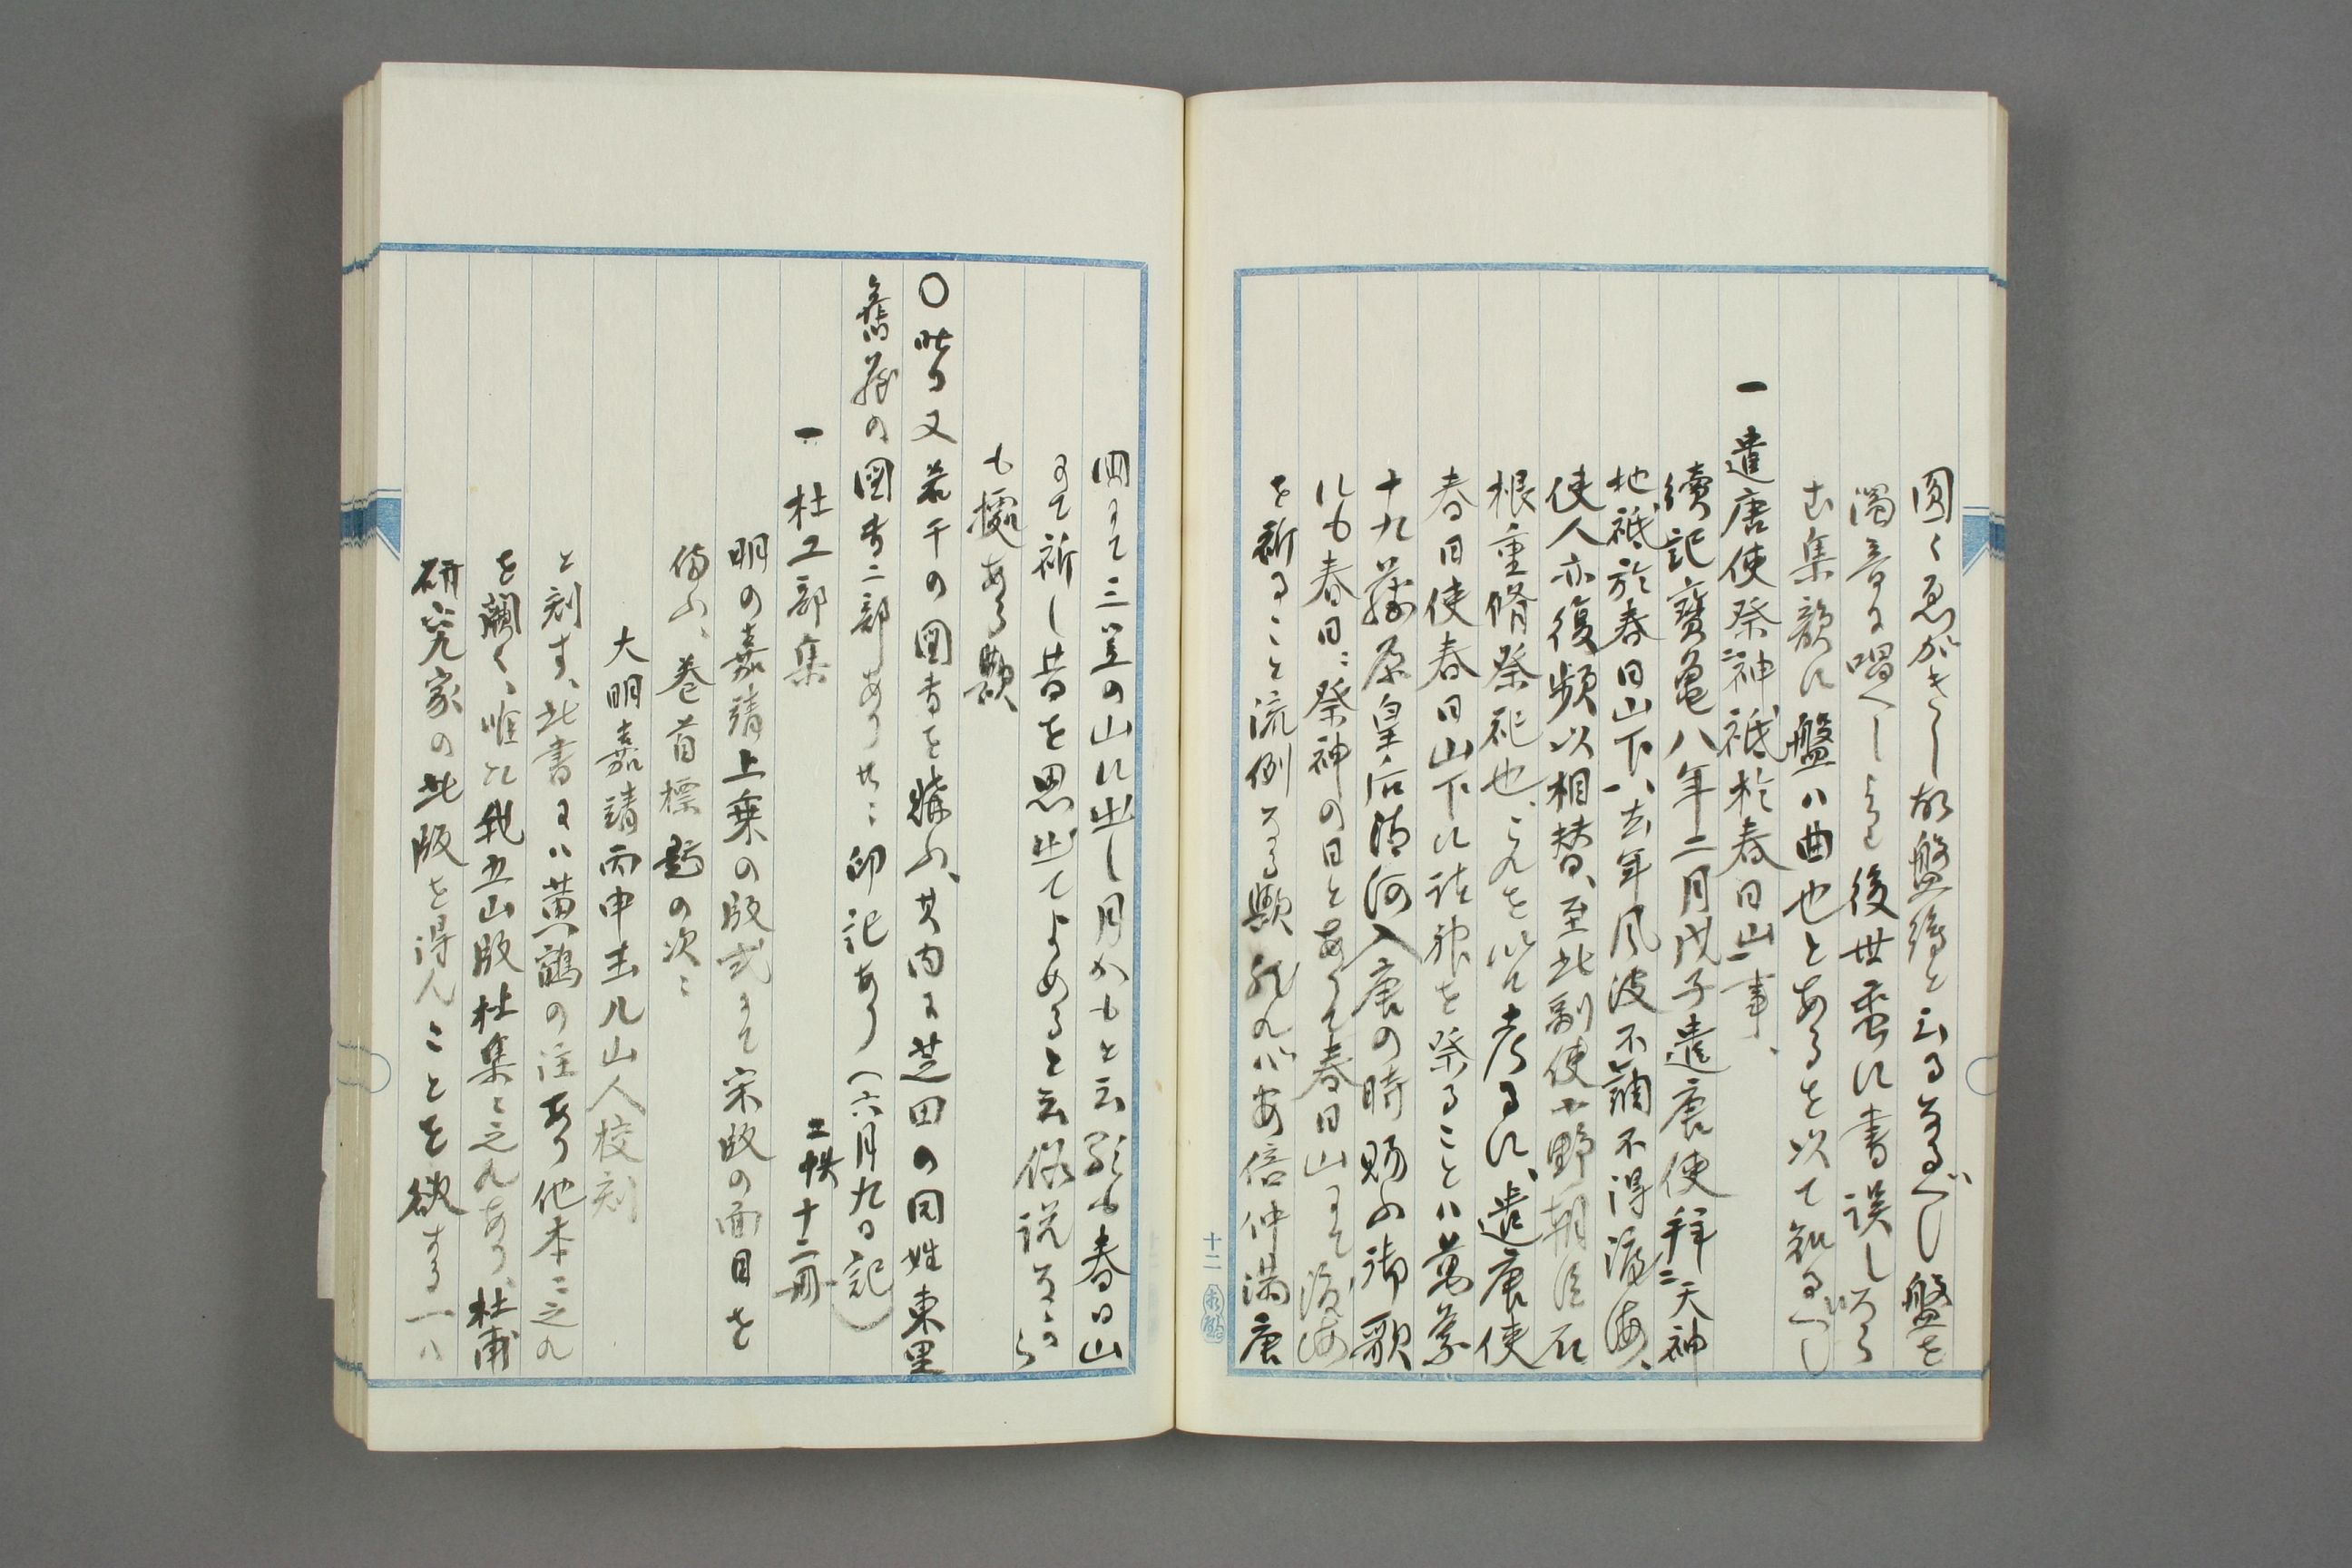 圓く忽がきし故盤得と云るなるべし盤を
濁音に唱へしより後世番に書誤しなら
む集韻に盤ハ曲也とあるを以て知るべし
一 遣唐使祭神祇於春日山事、
續記寶亀八年二月戊子遣唐使拝二天神
地祇於春日山下一、去年風波不調不得渡海、
使人亦復頻以相替、至此副使小野朝臣石
根重脩祭祀也、これを以て考るに、遣唐使
春日使春日山下に諸神を祭ることハ萬葉
十九藤原皇后清河入唐の時賜ふ御歌
にも春日ニ祭神の日とありて春日山にて渡海
を祈ること流例なる歟然れバ安倍仲満唐
國にて三笠の山に出し月かもと云歌も春日山
にて祈し昔を思出てよめると云俗説なから
も據ある歟
〇昨日又若干の図書を購ふ、其内に芝田の同姓東里
舊蔵の図書二部あり共ニ印記あり（六月九日記）
一 杜工部集 二帙十二冊
明の嘉靖上乗の版式にて宋版の面目を
備ふ、巻首標題の次ニ
大明嘉靖丙申玉几山人校刻
と刻す、此書にハ黄鶴の注あり他本ニ之れ
を闕く、唯だ我五山版杜集ニ之れあり、杜甫
研究家の此版を得んことを欲する一ハ
十二